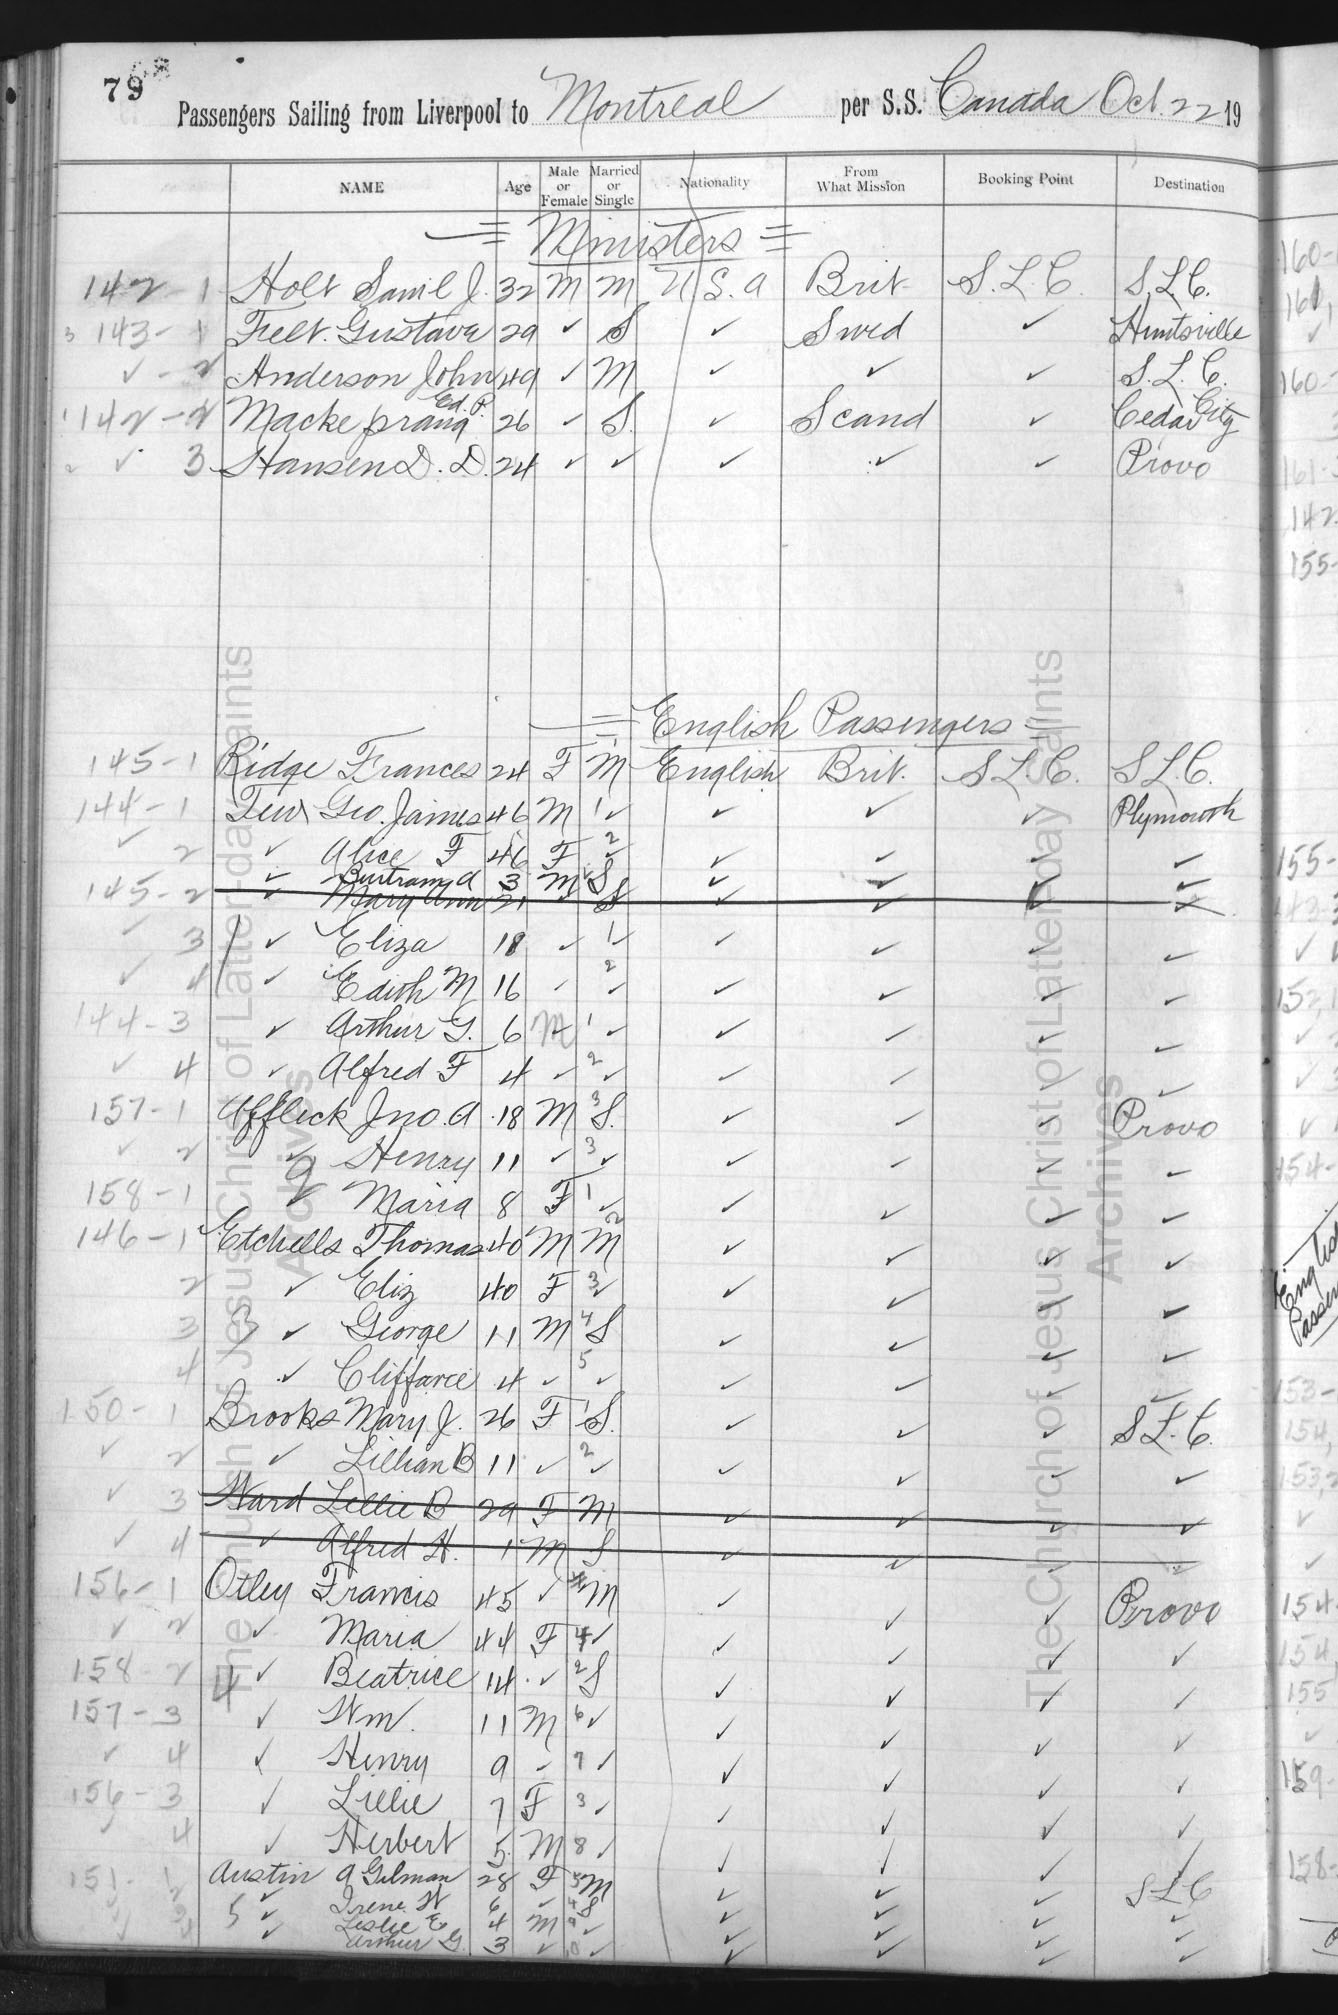 79
Passengers Sailing from Liverpool to Montreal per S.S. Canada Oct. 22 19
NAME Age Male or Female Married or Single Nationality From What Mission Booking Point Destination
= Ministers =
142-1 Holt Saml J. 32 M M U.S.A Brit. S.L.C. S.L.C.
143-1 Felt Gustave 29 ✓ S ✓ Swed ✓ Huntsville
✓-2 Anderson John 49 ✓ M ✓ ✓ ✓ S.L.C.
142-2 Mackeprang Ed. P. 26 ✓ S. ✓ Scand ✓ Cedar City
✓ 3 Hansen D. D. 24 ✓ ✓ ✓ ✓ ✓ Provo
= English Passengers =
145-1 Ridge Frances 24 F M English Brit. S.L.C. S.L.C.
144-1 Tew Geo. James 46 M 1 ✓ ✓ ✓ ✓ Plymouth
✓ 2 ✓ Alice F 46 F 2 ✓ ✓ ✓ ✓ ✓
✓ Bertram A 3 M ✓ S ✓ ✓ ✓ ✓
145-2 ✓ Mary Ann 21 ✓ S ✓ ✓ ✓ ✓
✓ 3 ✓ Eliza 18 ✓ 1 ✓ ✓ ✓ ✓ ✓
✓ 4 ✓ Edith M 16 ✓ 2 ✓ ✓ ✓ ✓ ✓
144-3 ✓ Arthur G. 6 M 1 ✓ ✓ ✓ ✓ ✓
✓ 4 ✓ Alfred F 4 ✓ 2 ✓ ✓ ✓ ✓ ✓
157-1 Affleck Jno. A. 18 M 3 S. ✓ ✓ ✓ Provo
✓ 2 2 ✓ Henry 11 ✓ 3 ✓ ✓ ✓ ✓ ✓
158-1 ✓ Maria 8 F 1 ✓ ✓ ✓ ✓ ✓
146-1 Etchells Thomas 40 M 2 M ✓ ✓ ✓ ✓
2 ✓ Eliz 40 F 3 ✓ ✓ ✓ ✓ ✓
3 3 ✓ George 11 M 4 S ✓ ✓ ✓ ✓
4 ✓ Cliffarce 4 ✓ 5 ✓ ✓ ✓ ✓ ✓
150-1 Brooks Mary J. 26 F 1 S. ✓ ✓ ✓ S.L.C.
✓ 2 ✓ Lillian B 11 ✓ 2 ✓ ✓ ✓ ✓ ✓
✓ 3 Ward Lellie B 29 F M ✓ ✓ ✓ ✓
✓ 4 ✓ Alfred H. 1 M S ✓ ✓ ✓
156-1 Otley Francis 45 ✓ M ✓ ✓ ✓ Provo
✓ 2 ✓ Maria 44 F 4 ✓ ✓ ✓ ✓ ✓
158-2 4 ✓ Beatrice 14 ✓ 2 S ✓ ✓ ✓ ✓
157-3 ✓ Wm. 11 M 6 ✓ ✓ ✓ ✓ ✓
✓ 4 ✓ Henry 9 ✓ 7 ✓ ✓ ✓ ✓ ✓
156-3 ✓ Lillie 7 F 3 ✓ ✓ ✓ ✓ ✓
✓ 4 ✓ Herbert 5 M 8 ✓ ✓ ✓ ✓ ✓
151- Austin A Gilman 28 F 5 M ✓ ✓ ✓ S L C
5 ✓ Irene W 6 ✓ 4 S ✓ ✓ ✓ ✓
✓ Leslie E 4 M 9 ✓ ✓ ✓ ✓ ✓
✓ Arthur G. 3 ✓ 10 ✓ ✓ ✓ ✓ ✓
The Church of Jesus Christ of Latter-day Saints
Archives
The Church of Jesus Christ of Latter-day Saints
Archives
160-
161,
160-
161-
142
155-
155-
152,
154-
English
Passen
153-
154,
153,
154
154,
155
159-
158-